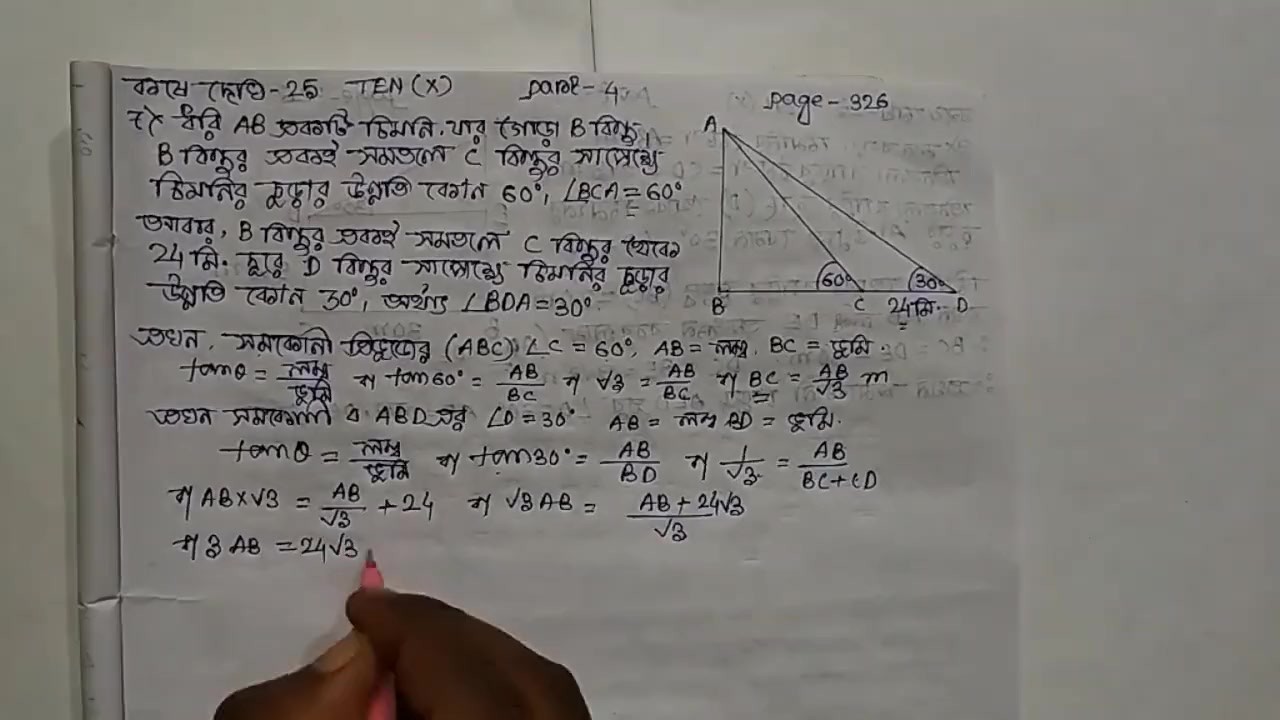 কষে দেখি-25 TEN (X) part-4 page-326
7) ধরি AB একটি চিমনি, যার গোড়া B বিন্দু,
B বিন্দুর একই সমতলে C বিন্দুর সাপেক্ষে
চিমনির চূড়ার উন্নতি কোন 60°, ∠BCA = 60°
আবার, B বিন্দুর একই সমতলে C বিন্দুর থেকে
24 মি. দূরে D বিন্দুর সাপেক্ষে চিমনির চূড়ার
উন্নতি কোন 30°, অর্থাৎ ∠BDA = 30°
A
60° 30°
B C 24মি. D
এখন, সমকোনী ত্রিভুজের (ABC) ∠C = 60°, AB = লম্ব, BC = ভূমি
tanθ = লম্ব/ভূমি বা tan60° = AB/BC বা √3 = AB/BC বা BC = AB/√3 m
এখন সমকোনী ABD এর ∠D = 30° AB = লম্ব BD = ভূমি.
tanθ = লম্ব/ভূমি বা tan30° = AB/BD বা 1/√3 = AB/BC+CD
বা AB×√3 = AB/√3 + 24 বা √3AB = AB + 24√3/√3
বা 3AB = 24√3